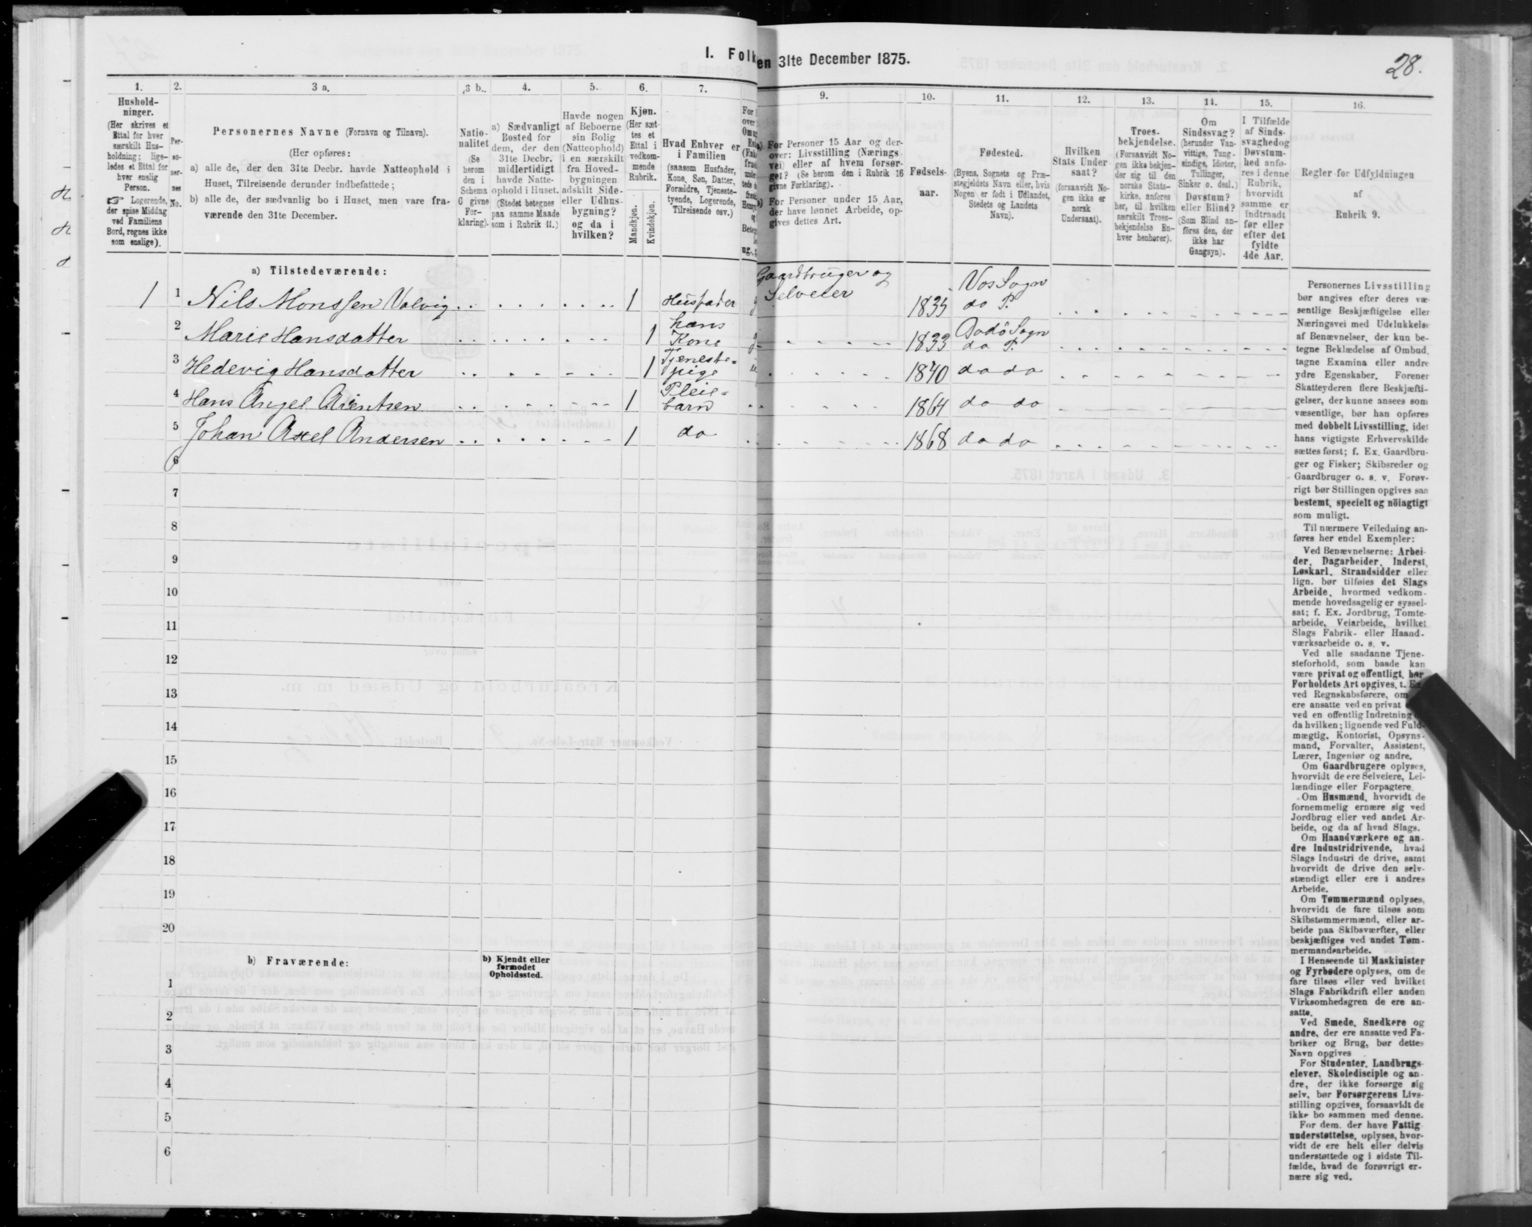 I. Folk
en 31te December 1875.
28.
1.
2.
3 a.
3 b.
4.
5.
6.
7.
9.
10.
11.
12.
13.
14.
15.
16.
Hushold-
ninger.
(Her skrives et
Ettal for hver
særskilt Hus-
holdning; lige-
ledes et Ettal for
hver enslig
Person.
☞ Logerende,
der spise Middag
ved Familiens
Bord, regnes ikke
som enslige).
Per-
so-
ner-
nes
No.
Personernes Navne (Fornavn og Tilnavn).
(Her opføres:
a) alle de, der den 31te Decbr. havde Natteophold i
Huset, Tilreisende derunder indbefattede;
b) alle de, der sædvanlig bo i Huset, men vare fra-
værende den 31te December.
Natio-
nalitet
(Se
herom
den i
Schema
G givne
For-
klaring).
a) Sædvanligt
Bosted for
dem, der den
31te Decbr.
midlertidigt
havde Natte-
ophold i Huset.
(Stedet betegnes
paa samme Maade
som i Rubrik 11.)
Havde nogen
af Beboerne
sin Bolig
(Natteophold)
i en særskilt
fra Hoved-
bygningen
adskilt Side-
eller Udhus-
bygning?
og da i
hvilken?
Kjøn.
(Her sæt-
tes et
Ettal i
vedkom-
mende
Rubrik.
Mandkjøn.
Kvindekjøn.
Hvad Enhver er
i Familien
(saasom Husfader,
Kone, Søn, Datter,
Forældre, Tjeneste-
tyende, Logerende,
Tilreisende osv.)
For Personer 15 Aar og der-
over: Livsstilling (Nærings-
vei) eller af hvem forsør-
get? (Se herom den i Rubrik 16
givne Forklaring).
For Personer under 15 Aar,
der have lønnet Arbeide, op-
gives dettes Art.
Fødsels-
aar.
Fødested.
(Byens, Sognets og Præ-
stegjeldets Navn eller, hvis
Nogen er født i Udlandet,
Stedets og Landets
Navn).
Hvilken
Stats Under
saat?
(forsaavidt No-
gen ikke er
norsk
Undersaat).
Troes-
bekjendelse.
(Forsaavidt No-
gen ikke bekjen-
der sig til den
norske Stats-
kirke, anføres
her, til hvilken
særskilt Troes-
bekjendelse En-
hver henhører).
Om
Sindssvag?
(herunder Van-
vittige, Tung-
sindige, Idioter,
Tullinger,
Sinker o. desl.)
Døvstum?
eller Blind?
(Som Blind an-
føres den, der
ikke har
Gangsyn).
I Tilfælde
af Sinds-
svaghedog
Døvstum-
hed anfø-
res i denne
Rubrik,
hvorvidt
samme er
indtraadt
før eller
efter det
fyldte
4de Aar.
Regler for Udfyldningen
af
Rubrik 9.
a) Tilstedeværende:
1 1 Nils Monssen Valvig 1 Husfader Gaardbruger og Selveier 1835 Vos Sogn do P.
2 Marie Hansdatter 1 hans Kone 1833 Bodö Sogn do P.
3 Hedevig Hansdatter 1 Tjeneste-pige 1840 do do
4 Hans Angel Arentsen 1 Pleie-barn 1864 do do
5 Johan Axel Andersen 1 do 1868 do do
6
7
8
9
10
11
12
13
14
15
16
17
18
19
20
b) Fraværende:
b) Kjendt eller
formodet
Opholdssted.
1
2
3
4
5
6
Personernes Livsstilling
bør angives efter deres væ-
sentlige Beskjæftigelse eller
Næringsvei med Udelukkelse
af Benævnelser, der kun be-
tegne Beklædelse af Ombud,
tagne Examina eller andre
ydre Egenskaber. Forener
Skatteyderen flere Beskjæfti-
gelser, der kunne ansees som
væsentlige, bør han opføres
med dobbelt Livsstilling, idet
hans vigtigste Erhvervskilde
sættes først; f. Ex. Gaardbru-
ger og Fisker; Skibsreder og
Gaardbruger o. s. v. Forøv-
rigt bør Stillingen opgives saa
bestemt, specielt og nöiagtigt
som muligt.
Til nærmere Veiledning an-
føres her endel Exempler:
Ved Benævnelserne: Arbei-
der, Dagarbeider, Inderst,
Løskarl, Strandsidder eller
lign. bør tilføies det Slags
Arbeide, hvormed vedkom-
mende hovedsagelig er syssel-
sat; f. Ex. Jordbrug, Tomte-
arbeide, Veiarbeide, hvilket
Slags Fabrik- eller Haand-
værksarbeide o. s. v.
Ved alle saadanne Tjene-
steforhold, som baade kan
være privat og offentligt, bør
Forholdets Art opgives, t. Ex.
ved Regnskabsførere, om
ere ansatte ved en privat
ved en offentlig Indretning
da hvilken; lignende ved Fuld-
mægtig, Kontorist, Opsyns-
mand, Forvalter, Assistent,
Lærer, Ingeniør og andre.
Om Gaardbrugere oplyses,
hvorvidt de ere Selveiere, Lei-
lændinge eller Forpagtere.
Om Husmænd, hvorvidt de
fornemmelig ernære sig ved
Jordbrug eller ved andet Ar-
beide, og da af hvad Slags.
Om Haandværkere og an-
dre Industridrivende, hvad
Slags Industri de drive, samt
hvorvidt de drive den selv-
stændigt eller ere i andres
Arbeide.
Om Tømmermænd oplyses,
hvorvidt de fare tilsøs som
Skibstømmermænd, eller ar-
beide paa Skibsværfter, eller
beskjæftiges ved andet Tøm-
mermandsarbeide.
I Henseende til Maskinister
og Fyrbødere oplyses, om de
fare tilsøs eller ved hvilket
Slags Fabrikdrift eller anden
Virksomhedsgren de ere an-
satte.
Ved Smede, Snedkere og
andre, der ere ansatte ved Fa-
briker og Brug, bør dettes
Navn opgives
For Studenter, Landbrugs-
elever, Skoledisciple og an-
dre, der ikke forsørge sig
selv, bør Forsørgerens Livs-
stilling opgives, forsaavidt de
ikke bo sammen med denne.
For dem, der have Fattig
understøttelse, oplyses, hvor-
vidt de ere helt eller delvis
understøttede og i sidste Til-
fælde, hvad de forøvrigt er-
nære sig ved.